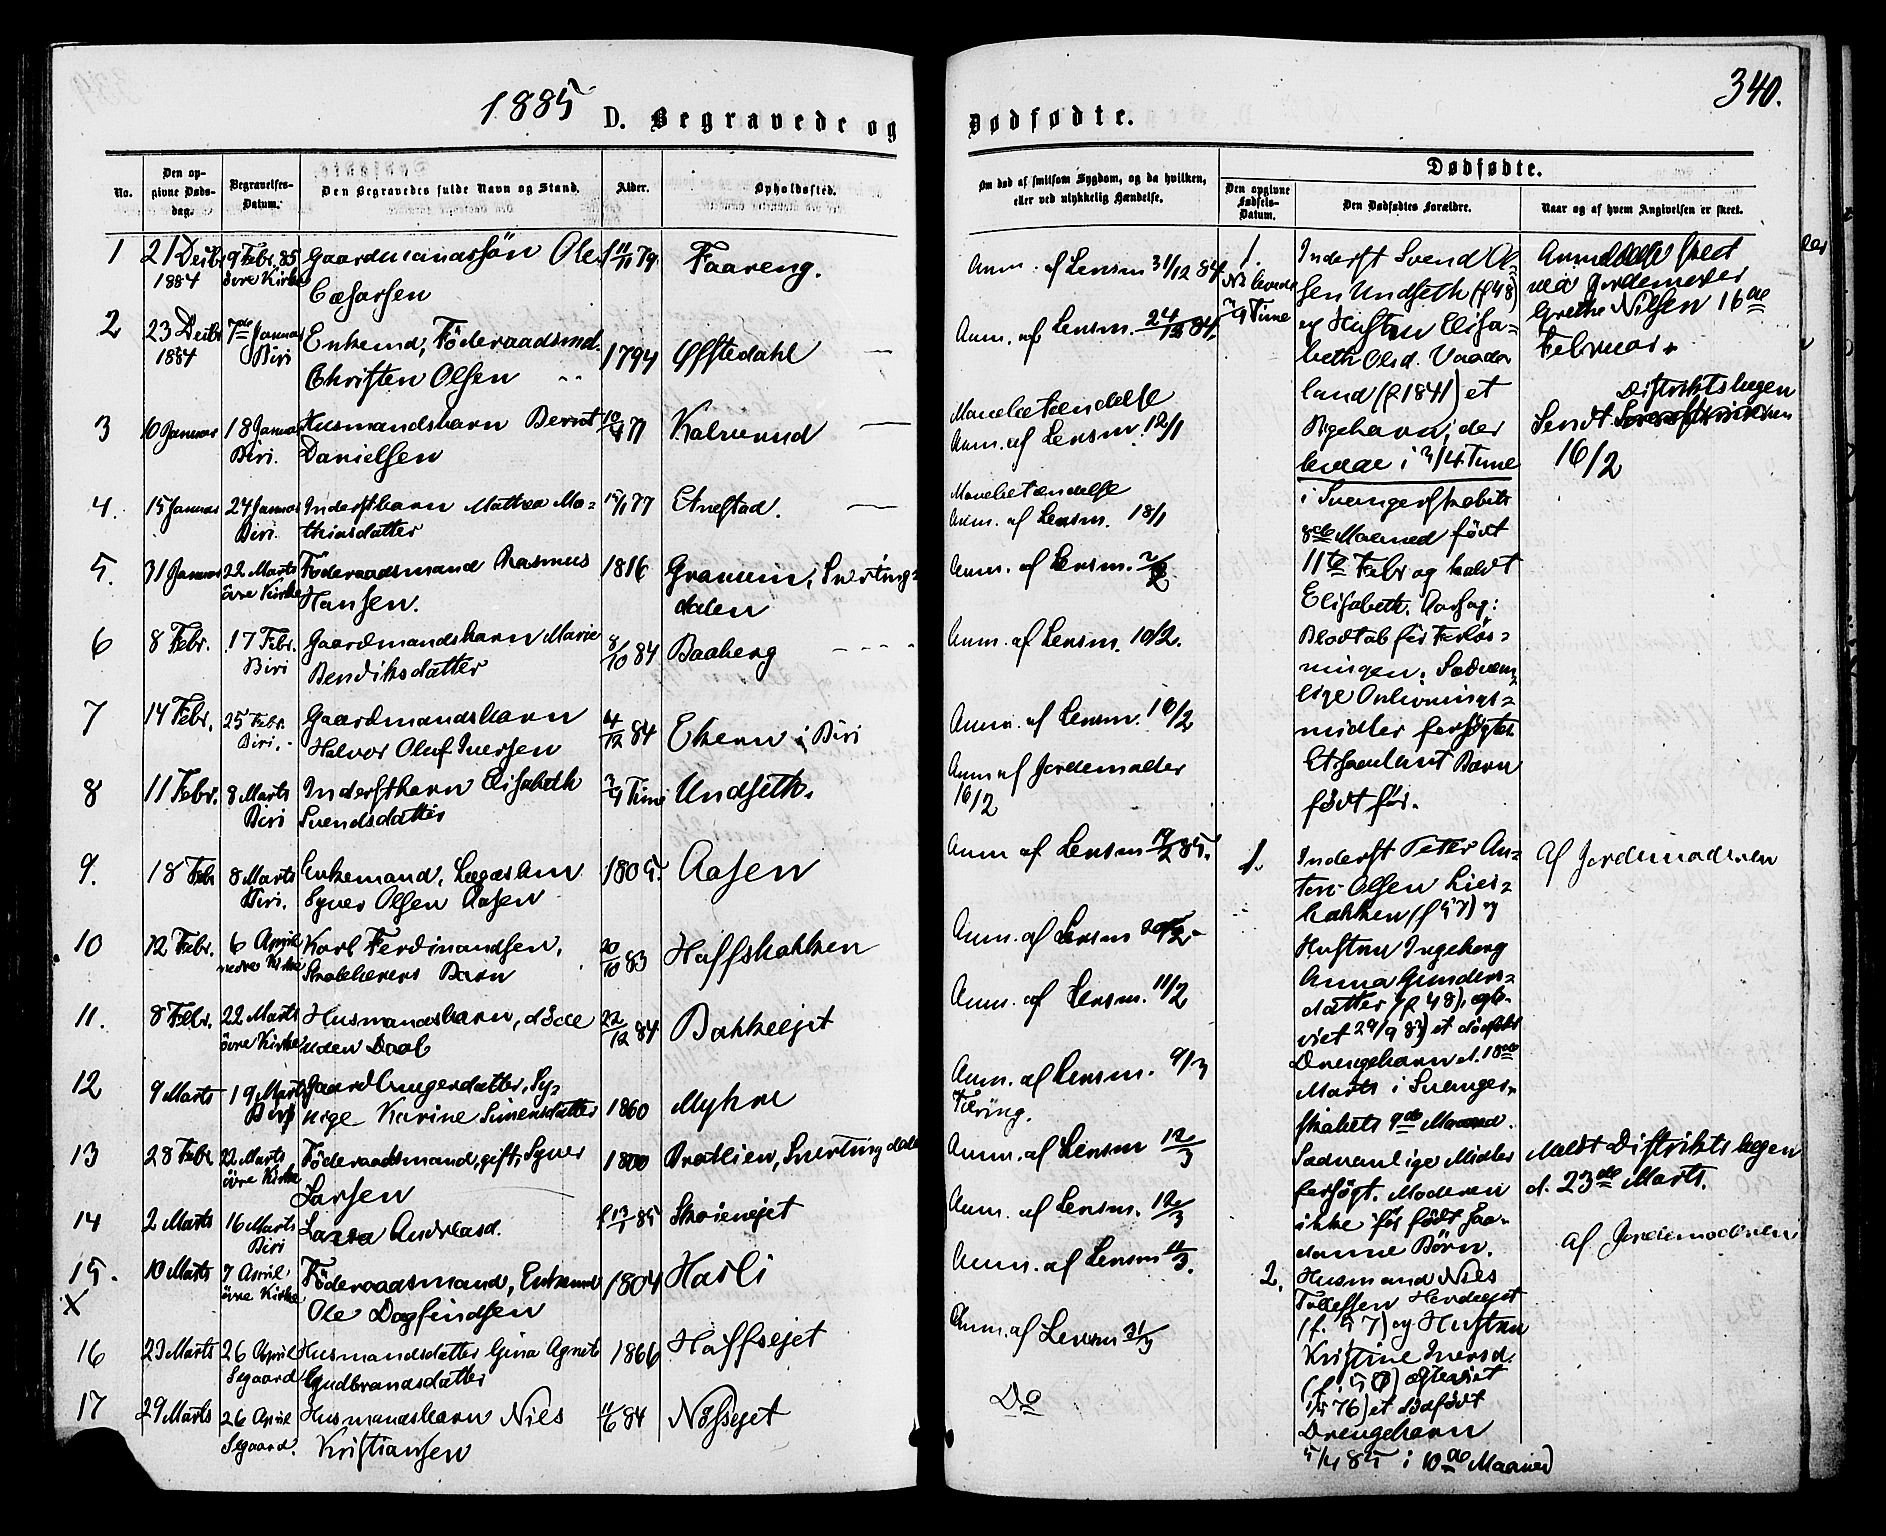 1885
D. Begravede og
No.
Den op-
givne Døds-
dag.
Begravelses-
Datum.
Den Begravedes fulde Navn og Stand.
Alder.
Opholdssted.
1 21 Decbr 9 Febr. 85 Gaardmandssøn Ole f 11/11 79. Faareng.
1884 övre Kirke Cæsarsen
2 23 Decbr 7de Januar Enkemd, Föderaadsmd. 1794 Offstedahl
1884 Biri Christen Olsen
3 6 Januar 18 Januar Husmandsbarn Bernt 77 Kalverud
Biri. Danielsen
4. 15 Januar 24 Januar Inderstbarn Mathea Ma- 77 Enestad.
Biri. thiasdatter
5. 31 Januar 22 Marts Föderaadsmand Rasmus 1816 Snerting-
övre Kirke Hansen. dalen
6 8 Febr. 17 Febr. Gaardmandsbarn Marie 8/10 84 Baaberg
Biri Bendiksdatter
7 14 Febr. 25 Febr. Gaardmandsbarn 4/12 84 Ekern i Biri
Biri. Halvor Oluf Iversen
8 11 Febr. 8 Marts Inderstbarn Elisabeth 3/4 Time Undseth.
Biri Svendsdatter
9. 18 Febr 8 Marts Enkemand, Lægdslem 1805. Aasen
Biri. Syver Olsen Aasen
10 12 Febr. 6 April Karl Ferdinandsen, 20/10 83 Haffsbakken
nedre Kirke Barn
11. 8 Febr. 22 Marts Husmandsbarn, döde 22/12 84 Bakkeejet
övre Kirke uden Daab
12 9 Marts 19 Marts Sy-
Biri nige Karine Simensdatter 1860 Myhre
13 28 Febr 22 Marts Föderaadsmand, gift, Syver 1800 Bratlien, Snertingdalen
övre Kirke Larsen
14 2 Marts 16 Marts Andreasd. 85 Skoienejet
Biri
15. 10 Marts 7 April Föderaadsmand, Enkemd 1804 Hasli
X övre Kirke Ole Dagfindsen
16 23 Marts 26 April Husmandsdatter Gina Agnete 1866 Haffsejet
Segaard Gudbrandsdatter
17 29 Marts 26 April Husmandsbarn Nils 11/6 84 Nøssejet
Segaard. Kristiansen
340.
Dødfødte.
Om død af smitsom Sygdom, og da hvilken,
eller ved ulykkelig Hændelse.
Dødfødte.
Den opgivne
Fødsels-
Datum.
Den Dødfødtes Forældre.
Naar og af hvem Angivelsen er skeet.
Anm. af Lensm 31/12 84.
Anm. af Lensm. 24/12 84.
Mavebetændelse
Anm. af Lensm. 12/1
Mavebetændelse
Anm. af Lensm. 18/1
Anm. af Lensm.
Anm. af Lensm. 10/2.
Anm. af Lensm. 16/2
Anm af Jordemoder
16/2
Anm af Lensm 19/2 85.
Anm. af Lensm
Anm. af Lensm. 11/2
Anm. af Lensm. 9/3
Tæring.
Anm. af Lensm 12/3
Anm. af Lensm. 12/3
Anm. af Lensm 11/3.
Anm. af Lensm 31/3
Do
1.
Nb levede
3/4 Time
Inderst Svend Ol-
sen Undseth (f 48)
og Hustru Elisa-
beth Olsd. Vaada-
land (f 1841) et
Pigebarn, der
levede i 3/4 Time
i Svangerskabets
8de Maaned født
11te Febr og kaldt
Elisabeth. Aarsag:
Blodtab før Forløs-
ningen. Sædvan-
lige Oplivnings-
midler forsøgtes
Et saadant Barn
født før.
Anmeldelse skeet
ved Jordemoder
Grethe Nilsen 16de
Februar.
Distriktslægen
Sendt
16/2
1.
Inderst Peter An-
ton Olsen Lier-
bakken (f 57) og
Hustru Ingeborg
Anna Gunders-
datter (f 48), ægte-
viet 29/9 83) et dödfødt
Drengebarn d. 18de
Marts i Svanger-
skabets 9de Maaned.
Sædvanlige Midler
forsøgt. Moderen
ikke før født saa-
danne Børn.
Af Jordemoderen
Meldt Distriktslægen
d. 23de Marts.
2.
Husmand Nils
Tollefsen
(f. 57) og Hustru
Kristine Iversd.
ægteviet
76) et dödfødt
Drengebarn
5/4 85 i 10de Maaned
af Jordemoderen